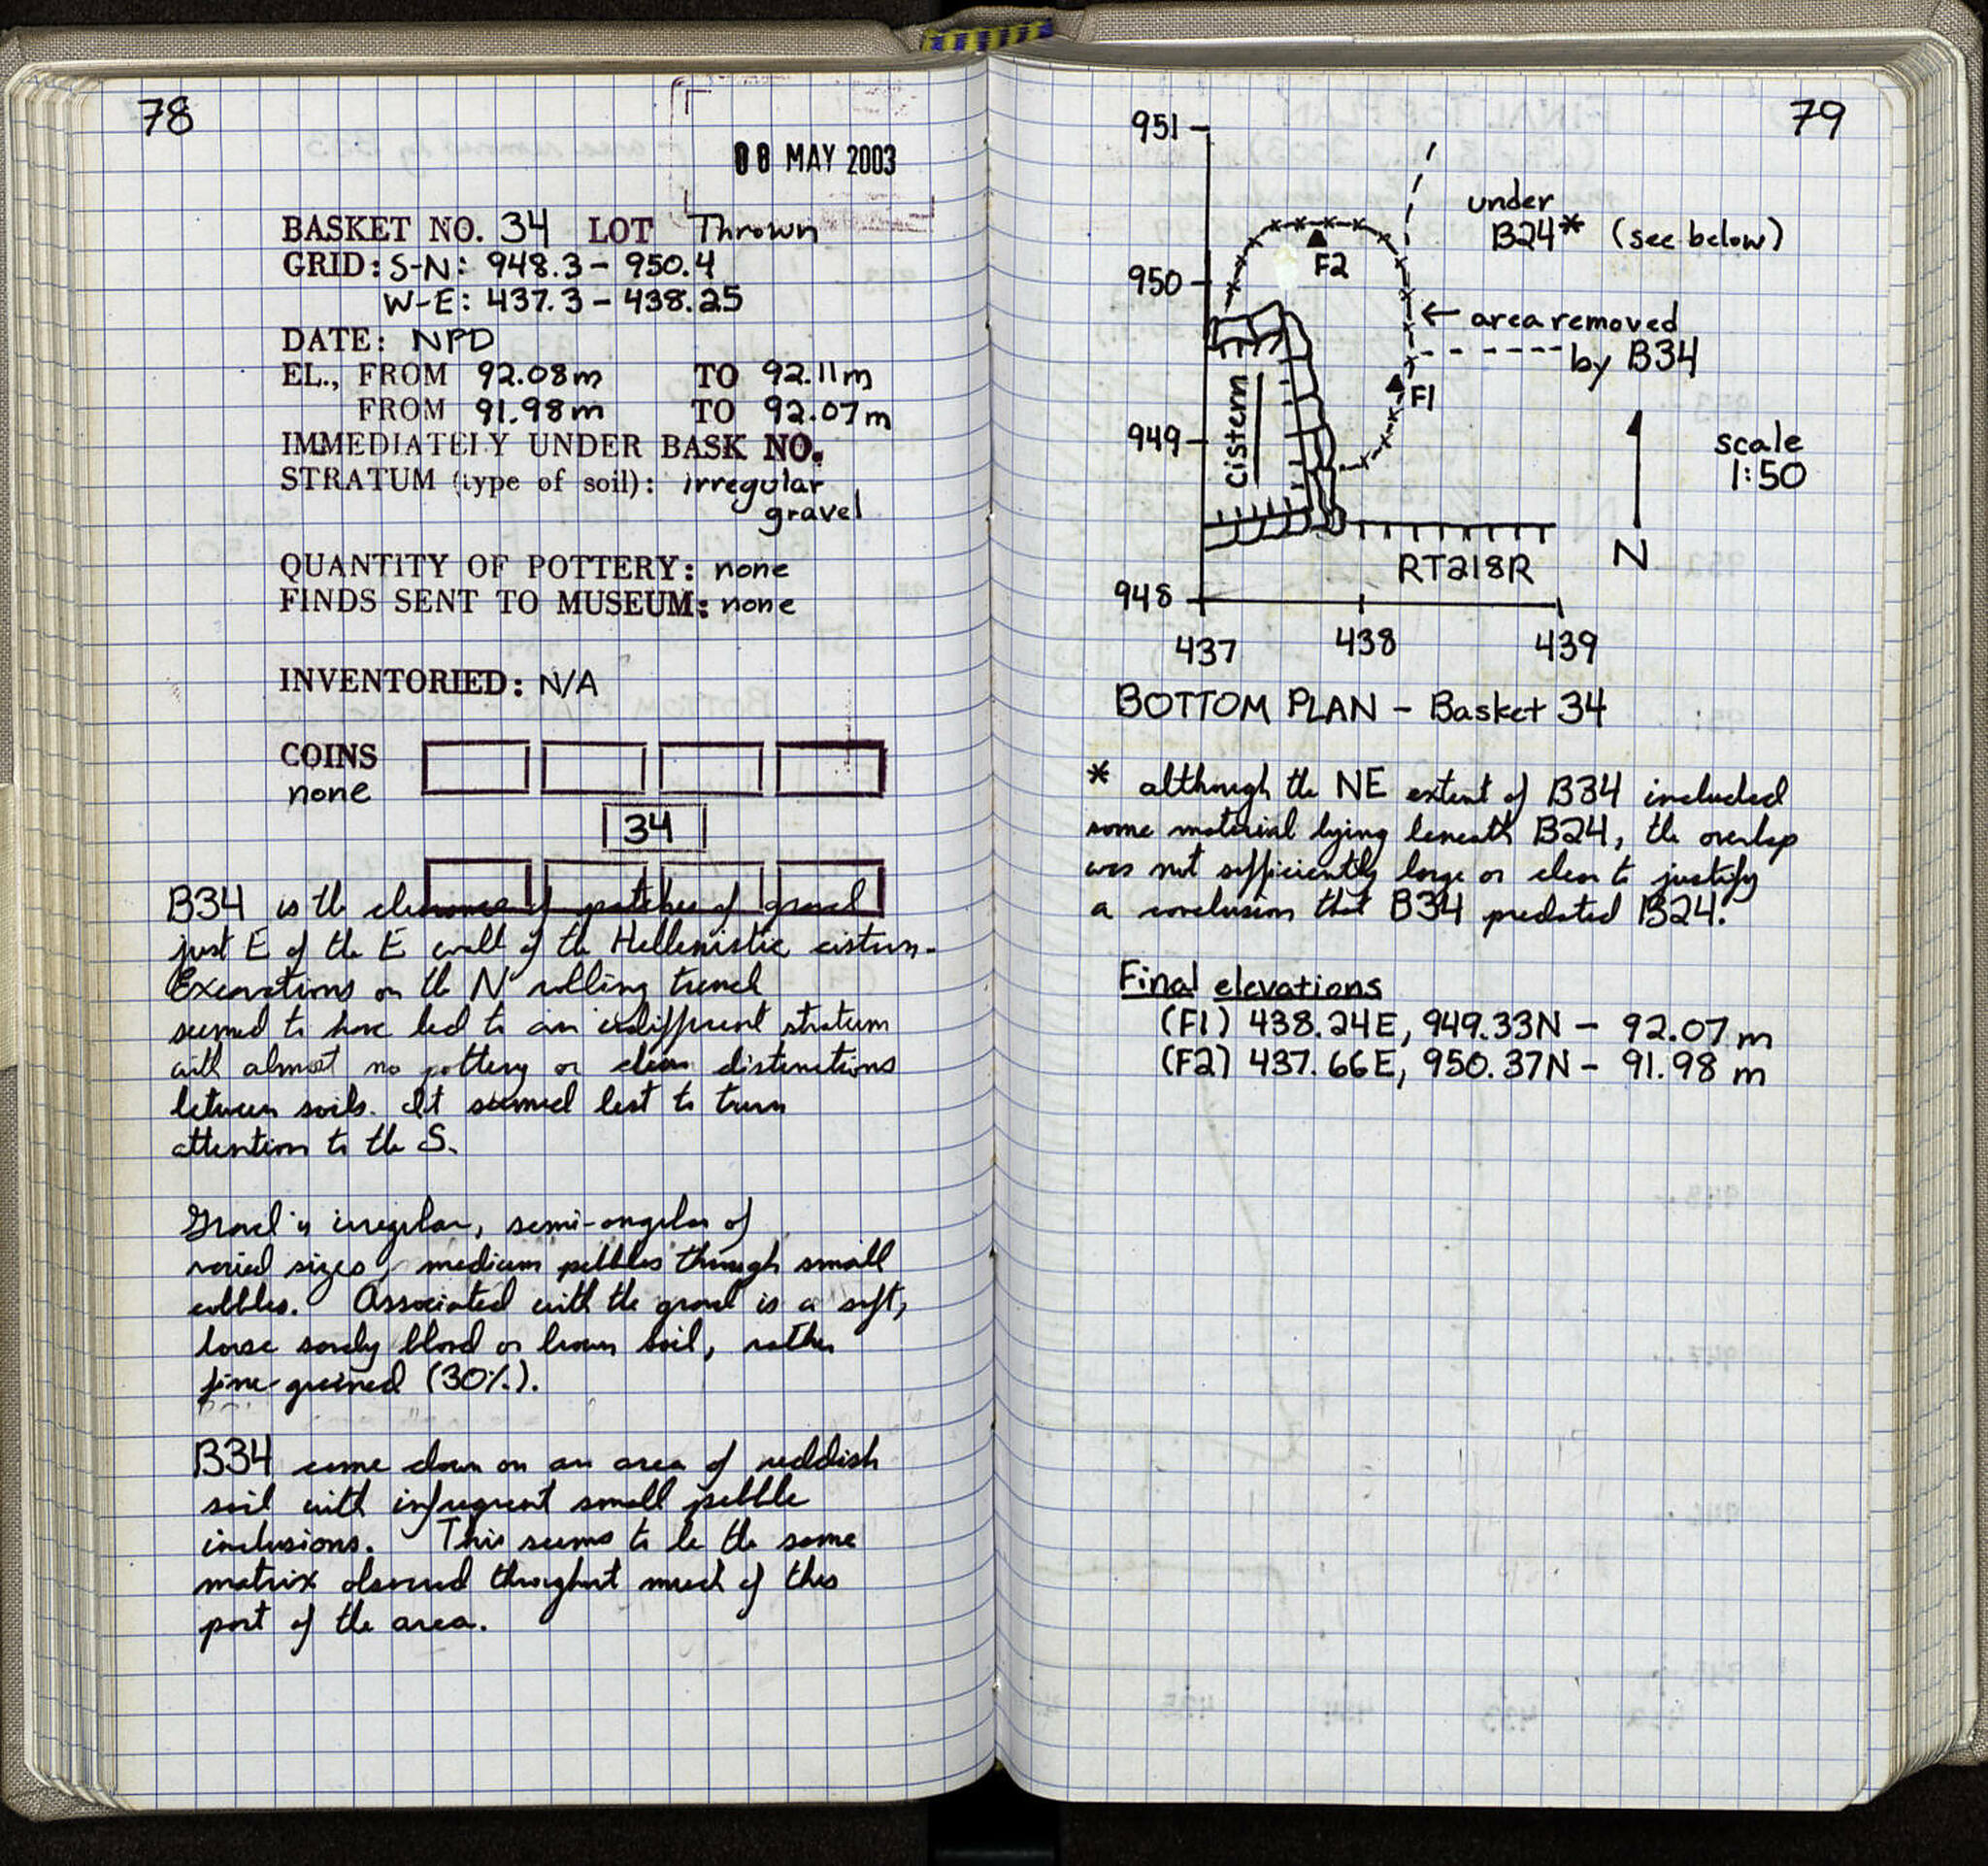 78
08 MAY 2003
BASKET NO. 34 LOT Thrown
GRID: S-N: 948.3 - 950.4
W-E: 437.3 - 438.25
DATE: NPD
EL., FROM 92.08m TO 92.11m
FROM 91.98m TO 92.07m
IMMEDIATELY UNDER BASK NO.
STRATUM (type of soil): irregular
gravel
QUANTITY OF POTTERY: none
FINDS SENT TO MUSEUM: none
INVENTORIED: N/A
COINS
none
34
B34 is the clearance of patches of gravel
just E of the E wall of the Hellenistic cistern.
Excavations on the N rolling trench
seemed to have led to an indifferent stratum
with almost no pottery or clear distinctions
between soils. It seemed best to turn
attention to the S.
Gravel is irregular, semi-angular of
varied sizes, medium pebbles through small
cobbles. Associated with the gravel is a soft,
loose sandy blond or brown soil, rather
fine-grained (30%).
B34 came down on an area of reddish
soil with infrequent small pebble
inclusions. This seems to be the same
matrix observed throughout much of this
part of the area.
79
951
under
B24* (see below)
F2
950
← area removed
by B34
F1
Cistern
949
scale
1:50
RT218R
N
948
437 438 439
BOTTOM PLAN - Basket 34
* although the NE extent of B34 included
some material lying beneath B24, the overlap
was not sufficiently large or clear to justify
a conclusion that B34 predated B24.
Final elevations
(F1) 438.24E, 949.33N - 92.07 m
(F2) 437.66E, 950.37N - 91.98 m